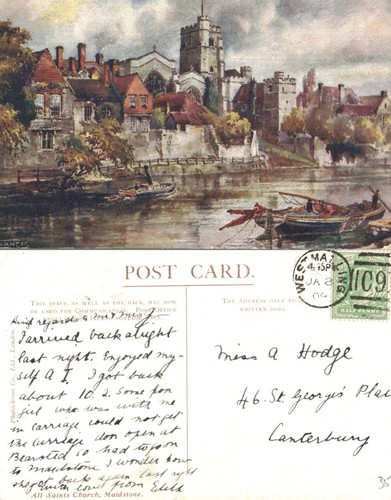 POST CARD.
THIS SPACE, AS WELL AS THE BACK, MAY NOW
BE USED FOR COMMUNICATION.
THE ADDRESS ONLY TO
WRITTEN HERE
WEST MALLING
4.15PM
JA 8
09
C91
HALF PENNY
Kind regards to
I arrived back alright
last night. Enjoyed my-
self A I. I got back
about 10.2. Some poor
girl who was with me
in carriage could not get
the carriage door open at
Bearsted so had to go on
to Maidstone I wonder how
she got back again last night
with love from
Miss A Hodge
46. St George's Place
Canterbury
All Saints Church, Maidstone.